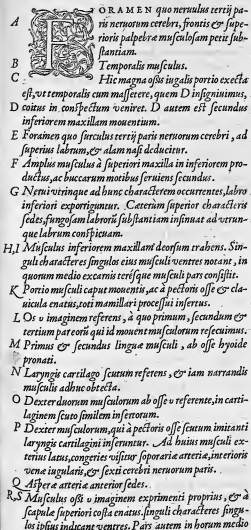 A FORAMEN quo neruulus tertij pa-
ris neruorum cerebri, frontis & supe-
rioris palpebræ musculosam petit sub
stantiam.
B Temporalis musculus.
C Hic magna oßis iugalis portio execta
est, ut temporalis cum massetere, quem D insigniuimus,
D coitus in conspectum veniret. D autem est secundus
inferiorem maxillam mouentium.
E Foramen quo surculus tertij paris neruorum cerebri, ad
superius labrum, & alam nasi deducitur.
F Amplus musculus à superiori maxilla in inferiorem pro-
ductus, ac buccarum motibus seruiens secundus.
G Nerui vtrinque ad hunc characterem occurrentes, labro
inferiori exporriguntur. Cæterùm superior characteris
sedes, fungosam labrorũ substantiam insinuat ad vtrun-
que labrum conspicuam.
H,I Musculus inferiorem maxillam deorsum trahens. Sin-
guli characteres singulos eius musculi ventres notant, in
quorum medio excarnis terésque musculi pars consistit.
K Portio musculi caput mouentis, ac à pectoris osse & cla-
uicula enatus, toti mamillari processui insertus.
L Os υ imaginem referens, à quo primum, secundum &
tertium pareorũ qui id mouent musculorum resecuimus.
M Primus & secundus linguæ musculi, ab osse hyoide
pronati.
N Laryngis cartilago scutum referens, & iam narrandis
musculis adhuc obtecta.
O Dexter duorum musculorum ab osse υ referente, in carti-
laginem scuto similem insertorum.
P Dexter musculorum, qui à pectoris osse scutum imitanti
laryngis cartilagini inseruntur. Ad huius musculi ex-
terius latus, congeries visitur soporariæ arteriæ, interioris
venæ iugularis, & sexti cerebri neruorum paris.
Q Asperæ arteriæ anterior sedes.
R,S Musculus oßi υ imaginem exprimenti proprius, & à
scapulæ superiori costa enatus. singuli characteres singu-
los ipsius indicant ventres. Pars autem in horum medio